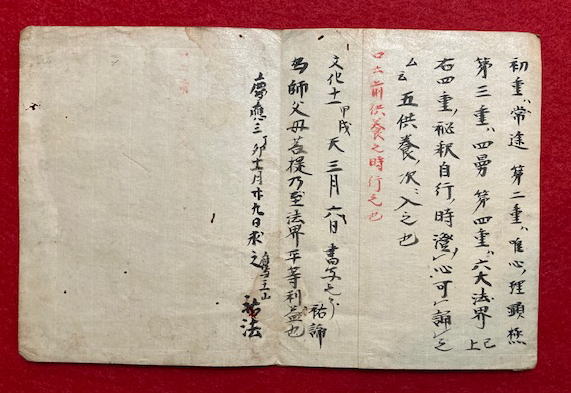 初重ハ常途 第二重ハ唯心
第三重ハ四曼 第四重ハ六大法界 已上
右四重ノ秘釈自行ノ時澄心可誦之
五供養ノ次ニ入之也
口云前供養之時行之也
文化十一甲戌天三月六日書写之 祐諭
為師父母菩提乃至法界平等利益也
慶應三丁卯十二月廿九日求之 祐法